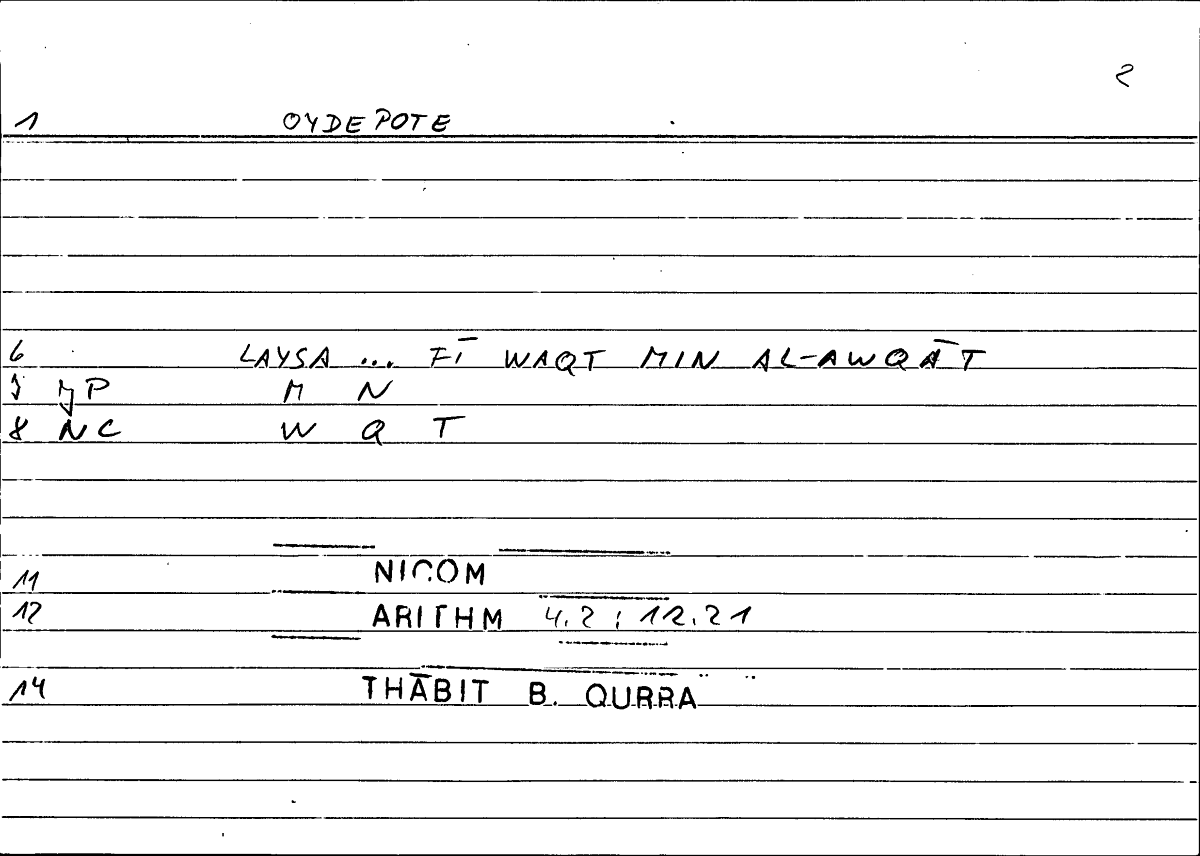 2
1 OYDEPOTE
6 LAYSA ... FĪ WAQT MIN AL-AWQĀT
M N
8 NC W Q T
11 NICOM
12 ARITHM 4.2 ; 12.21
14 THĀBIT B. QURRA